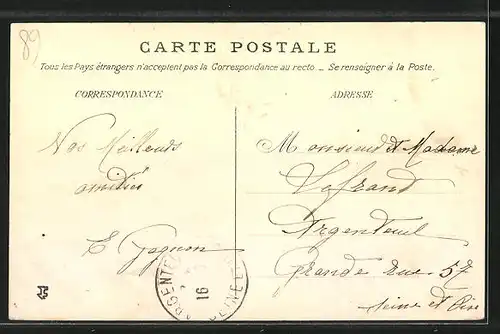 89
CARTE POSTALE
Tous les Pays étrangers n'acceptent pas la Correspondance au recto. _ Se renseigner à la Poste.
CORRESPONDANCE
ADRESSE
Nos Meilleurs
amitiés
E Gagnon
Monsieur et Madame
Lefrand
Argenteuil
Grande rue 57
Seine et Oise
ARGENTE
16
SEINE